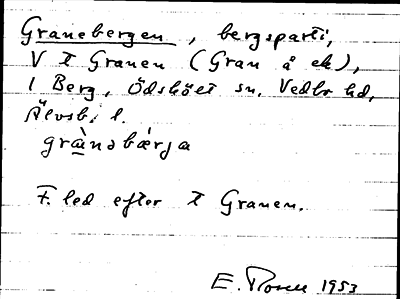 Granebergen, bergsparti,
V t Granen (Gran å ek),
1 Berg, Ödsköet sn. Vedbo hd,
Älvsb. l.
grànəbærja
F. led efter t Granen.
E. Rosén 1953